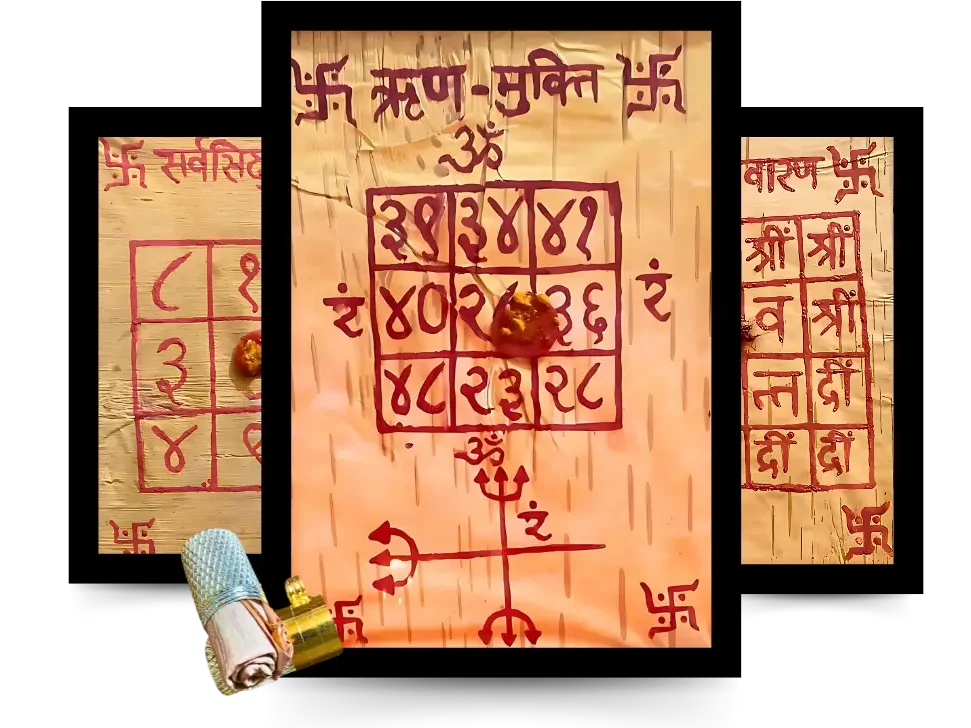 सर्वसि
८ १
३
४
卐 ऋण-मुक्ति 卐
ॐ
३९ ३४ ४१
रं ४० ३६ रं
४८ २३ २८
ॐ
रं
卐 卐
वारण 卐
श्रीं श्रीं
व श्रीं
त्त द्रीं
द्रीं द्रीं
卐